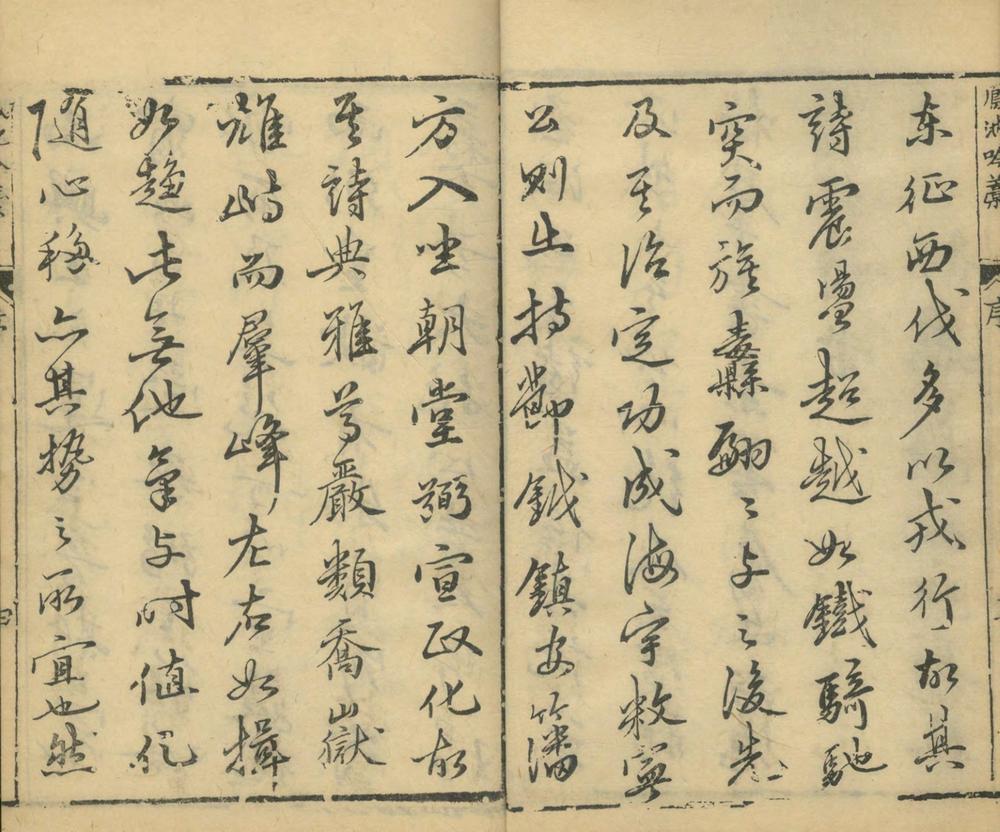 東征西伐多以戎行故其
詩震盪超越如鐵騎馳
突而旌纛翩〻與之後先
及其治定功成海宇敉寧
公則止持節鉞鎮安籓
方入坐朝堂弼宣政化故
其詩典雅尊嚴類喬嶽
雄峙而羣峰左右如揖
如趨此無他氣與時值化
隨心移亦其勢之所宜也然
序